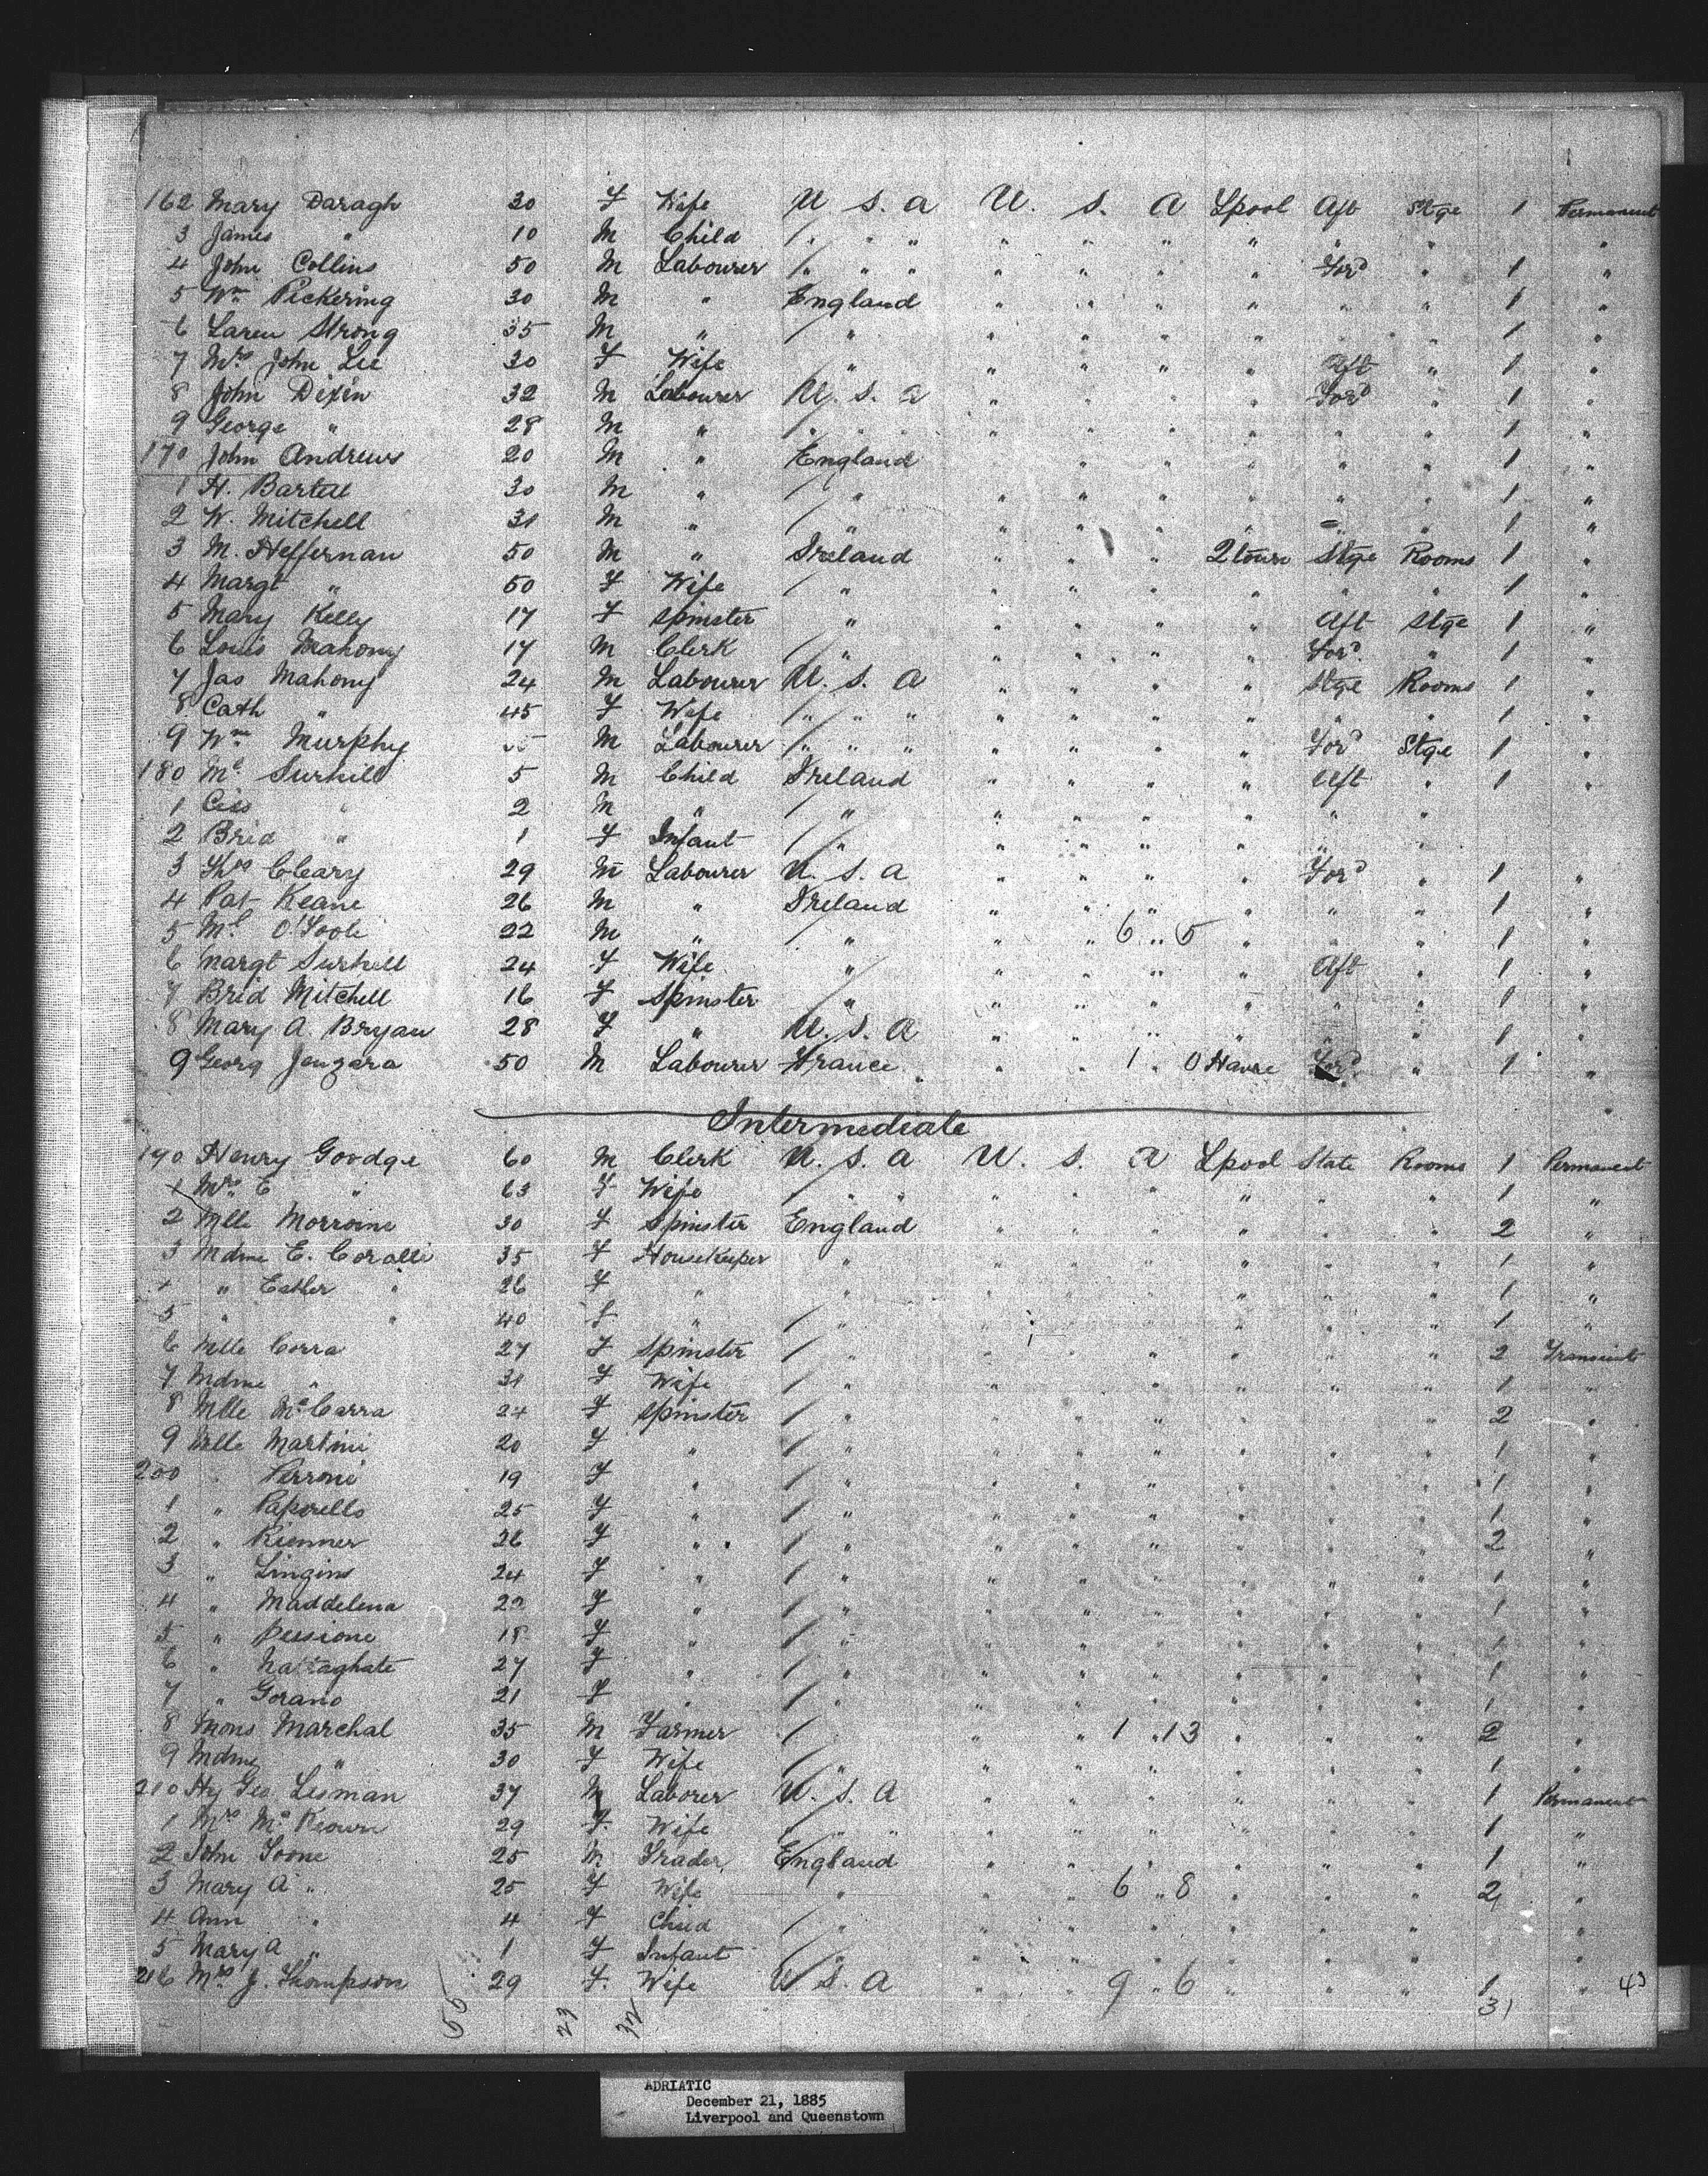 162 Mary Daragh 30 F Wife U. S. A U. S. A Lpool Aft Stge 1 Permanent
3 James " 10 M Child " " " " " " " " " "
4 John Collins 50 M Labourer " " " " " " " Ford " 1 "
5 Wm Pickering 30 M " England " " " " " " 1 "
6 Laren Strong 35 M " " " " " " " " 1 "
7 Mrs John Lee 30 F Wife " " " " " Aft " 1 "
8 John Dixin 32 M Labourer U. S. A " " " " Ford " 1 "
9 George " 28 M " " " " " " " " 1 "
170 John Andrews 20 M " England " " " " " " 1 "
1 H. Bartell 30 M " " " " " " " " 1 "
2 W. Mitchell 31 M " " " " " " " " 1 "
3 M. Heffernan 50 M " Ireland " " " 2town Stge Rooms 1 "
4 Margt " 50 F Wife " " " " " " " 1 "
5 Mary Kelly 17 F Spinster " " " " " Aft Stge 1 "
6 Louis Mahony 17 M Clerk " " " " " Ford " 1 "
7 Jas Mahony 24 M Labourer U. S. A " " " " Stge Rooms 1 "
8 Cath " 45 F Wife " " " " " " " " " 1 "
9 Wm Murphy M Labourer " " " " " " " Ford Stge 1 "
180 Ml Surhill 5 M Child Ireland " " " " Aft " 1 "
1 Ciss " 2 M " " " " " " " " "
2 Brid " 1 F Infant " " " " " " " "
3 Thos Cleary 29 M Labourer U. S. A " " " " Ford " 1 "
4 Pat Keane 26 M " Ireland " " " " " " 1 "
5 Ml O'Toole 22 M " " " " 6 .. 5 " " " 1 "
6 Margt Surhill 24 F Wife " " " " " Aft " 1 "
7 Brid Mitchell 16 F Spinster " " " " " " " 1 "
8 Mary A. Bryan 28 F " U. S. A " " " " " " 1 "
9 Georg Jenzara 50 M Labourer France " " 1 . 0 Havre Ford " 1 "
Intermediate
190 Henry Goodge 60 M Clerk U. S. A U. S. A Lpool State Rooms 1 Permanent
1 Mrs E " 63 F Wife " " " " " " " " 1 "
2 Mlle Morroine 30 F Spinster England " " " " " " 2 "
3 Mdme E. Coralli 35 F Housekeeper " " " " " " " 1 "
4 " Esther " 26 F " " " " " " " " 1 "
5 " " 40 F " " " " " " " " 1 "
6 Mlle Corra 27 F Spinster " " " " " " " 2 Transient
7 Mdme " 31 F Wife " " " " " " " 1 "
8 Mlle McCarra 24 F Spinster " " " " " " " 2 "
9 Mlle Martini 20 F " " " " " " " " 1 "
200 " Perroni 19 F " " " " " " " " 1 "
1 " Paporello 25 F " " " " " " " " 1 "
2 " Rienner 26 F " " " " " " " " 2 "
3 " Lingins 24 F " " " " " " " " 1 "
4 " Maddelena 22 F " " " " " " " " 1 "
5 " Pessione 18 F " " " " " " " " 1 "
6 " 27 F " " " " " " " " 1 "
7 " Gorano 21 F " " " " " " " " 1 "
8 Mons Marchal 35 M Farmer " " 1 .. 13 " " " 2 "
9 Mdme " 30 F Wife " " " " " " " 1 "
210 Hy Geo. Lesman 37 M Laborer U. S. A " " " " " " 1 Permanent
1 Mrs McKeown 29 F Wife " " " " " " " " " 1 "
2 John Toone 25 M Trader England " " " " " " 1 "
3 Mary A " 25 F Wife " " " 6 .. 8 " " " 2 "
4 Ann " 4 F Child " " " " " " " "
5 Mary A " 1 F Infant " " " " " " " "
216 Mrs J. Thompson 29 F Wife U S. A " " 9 .. 6 " " " 1 "
55 23 32 31 43
ADRIATIC
December 21, 1885
Liverpool and Queenstown